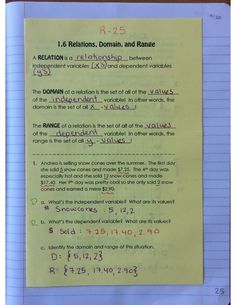 R-25
1.6 Relations, Domain, and Range
A RELATION is a relationship between
independent variables (x's) and dependent variables
(y's).
The DOMAIN of a relation is the set of all of the values
of the independent variable! In other words, the
domain is the set of all x - values!
The RANGE of a relation is the set of all of the values
of the dependent variable! In other words, the
range is the set of all y - values!
1. Andrea is selling snow cones over the summer. The first day
she sold 5 snow cones and made $7.25. The 4th day was
especially hot and she sold 12 snow cones and made
$17.40. Her 9th day was pretty cool so she only sold 2 snow
cones and earned a mere $2.90.
D a. What's the independent variable? What are its values?
# Snowcones : 5, 12, 2
R b. What's the dependent variable? What are its values?
$ Sold : 7.25, 17.40, 2.90
c. Identify the domain and range of this situation.
D: {5, 12, 2}
R: {7.25, 17.40, 2.90}
25